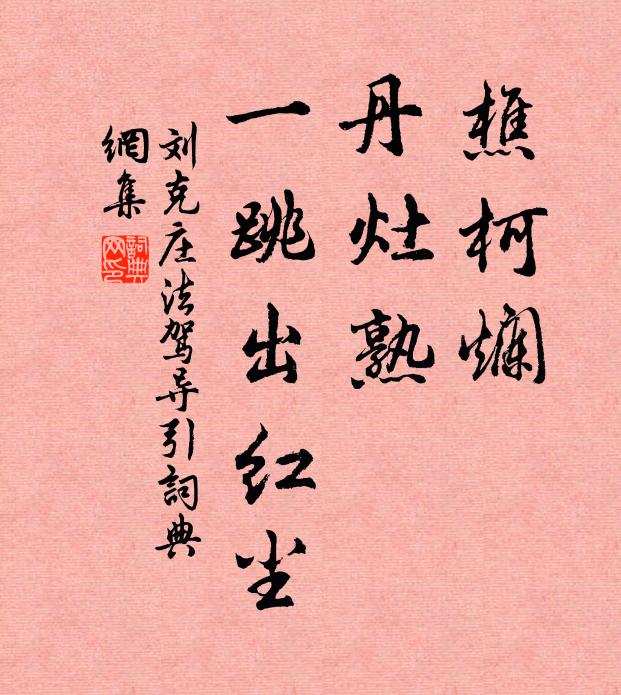 樵柯烂
丹灶熟
一跳出红尘
刘克庄法驾导引詞典
網集
詞典
网印